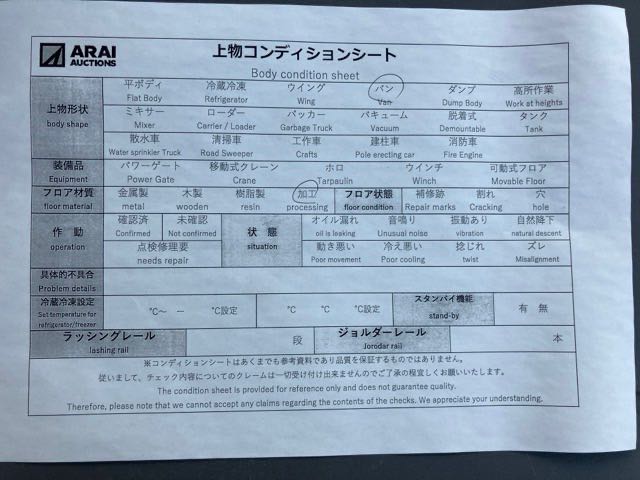 ARAI
AUCTIONS
上物コンディションシート
Body condition sheet
上物形状
body shape
平ボディ 冷蔵冷凍 ウイング バン ダンプ 高所作業
Flat Body Refrigerator Wing Van Dump Body Work at heights
ミキサー ローダー パッカー バキューム 脱着式 タンク
Mixer Carrier / Loader Garbage Truck Vacuum Demountable Tank
散水車 清掃車 工作車 建柱車 消防車
Water sprinkler Truck Road Sweeper Crafts Pole erecting car Fire Engine
装備品 パワーゲート 移動式クレーン ホロ ウインチ 可動式フロア
Equipment Power Gate Crane Tarpaulin Winch Movable Floor
フロア材質 金属製 木製 樹脂製 加工 フロア状態 補修跡 割れ 穴
floor material metal wooden resin processing floor condition Repair marks Cracking hole
作 動
operation
確認済 未確認
Confirmed Not confirmed
点検修理要
needs repair
状 態
situation
オイル漏れ 音鳴り 振動あり 自然降下
oil is leaking Unusual noise vibration natural descent
動き悪い 冷え悪い 捻じれ ズレ
Poor movement Poor cooling twist Misalignment
具体的不具合
Problem details
冷蔵冷凍設定
Set temperature for
refrigerator/freezer
℃～ ー ℃設定 ℃ ℃ ℃設定
スタンバイ機能
stand-by
有 無
ラッシングレール 段 ジョルダーレール 本
lashing rail Jorodar rail
※コンディションシートはあくまでも参考資料であり品質を保証するものではありません。
従いまして、チェック内容についてのクレームは一切受け付け出来ませんのでご了承の程宜しくお願いいたします。
The condition sheet is provided for reference only and does not guarantee quality.
Therefore, please note that we cannot accept any claims regarding the contents of the checks. We appreciate your understanding.